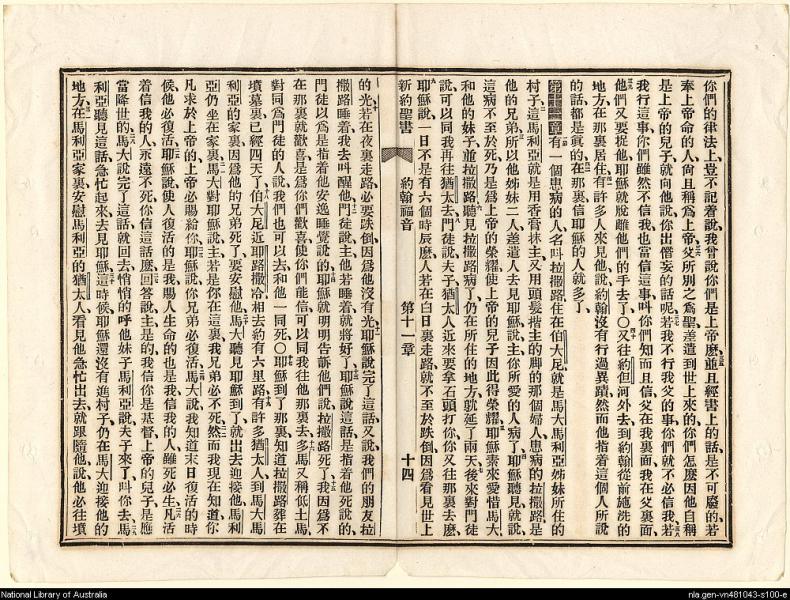 你們的律法上、豈不記着說、我曾說你們是上帝麽、並且經書上的話、是不可廢的、若
奉上帝命的人、尙且稱爲上帝、父所別之爲聖、差遣到世上來的、你們怎麽因他自稱
是上帝的兒子、就向他說、你出僭妄的話呢、若我不行我父的事、你們就不必信我、若
我行這事、你們雖然不信我、也當信這事、叫你們知而且信、父在我裏面、我在父裏面、
他們又要捉他、耶穌就脫離他們的手去了○又往約但河外去、到約翰從前施洗的
地方、在那裏居住、有許多人來見他、說、約翰沒有行過異蹟、然而他指着這個人所說
的話、都是眞的、在那裏信耶穌的人就多了、
第十一章 有一個患病的人、名叫拉撒路、住在伯大尼、就是馬大馬利亞姊妹所住的
村子、這馬利亞就是用香膏抹主、又用頭髮揩主的脚的、那個婦人、患病的拉撒路是
他的兄弟、所以他姊妹二人、差遣人去見耶穌說、主你所愛的人病了、耶穌聽見就說、
這病不至於死、乃是爲上帝的榮耀、使上帝的兒子因此得榮耀、耶穌素來愛惜馬大
和他的妹子、並拉撒路、聽見拉撒路病了、仍在所住的地方、就延了兩天、後來對門徒
說、可以同我再往猶太去、門徒說、夫子、猶太人近來要拿石頭打你、你又往那裏去麽、
耶穌說、一日不是有六個時辰麽、人若在白日裏走路、就不至於跌倒、因爲看見世上
新約聖書 約翰福音 第十一章 十四
的光、若在夜裏走路、必要跌倒、因爲他沒有光、耶穌說完了這話、又說、我們的朋友拉
撒路睡着、我去叫醒他、門徒說、主、他若睡着、就將好了、耶穌說這話、是指着他死說的、
門徒以爲是指着他安逸睡覺說的、耶穌就明明告訴他們說、拉撒路死了、我因爲不
在那裏就歡喜、是爲你們歡喜、使你們能信、可以同我往他那裏去、多馬又稱低土馬、
對同爲門徒的人說、我們也可以去、和他一同死○耶穌到了那裏、知道拉撒路葬在
墳墓裏、已經四天了、伯大尼近耶路撒冷、相去約有六里路、有許多猶太人、到馬大馬
利亞的家裏、因爲他的兄弟死了、要安慰他、馬大聽見耶穌到了、就出去迎接他、馬利
亞仍坐在家裏、馬大對耶穌說、主若是你在這裏、我兄弟必不死、然而我現在知道、你
凡求於上帝的、上帝必賜給你、耶穌說、你兄弟必復活、馬大說、我知道末日復活的時
候、他必復活、耶穌說、使人復活的是我、賜人生命的也是我、信我的人、雖死必生、凡活
着信我的人、永遠不死、你信這話麽、回答說、主是的、我信你是基督、上帝的兒子、是應
當降世的、馬大說完了這話、就回去、悄悄的呼他妹子馬利亞說、夫子來了、叫你去、馬
利亞聽見這話、急忙起來、去見耶穌、這時候耶穌還沒有進村子、仍在馬大迎接他的
地方、在馬利亞家裏、安慰馬利亞的猶太人、看見他急忙出去、就跟隨他、說、他必往墳
National Library of Australia
nla.gen-vn481043-s100-e